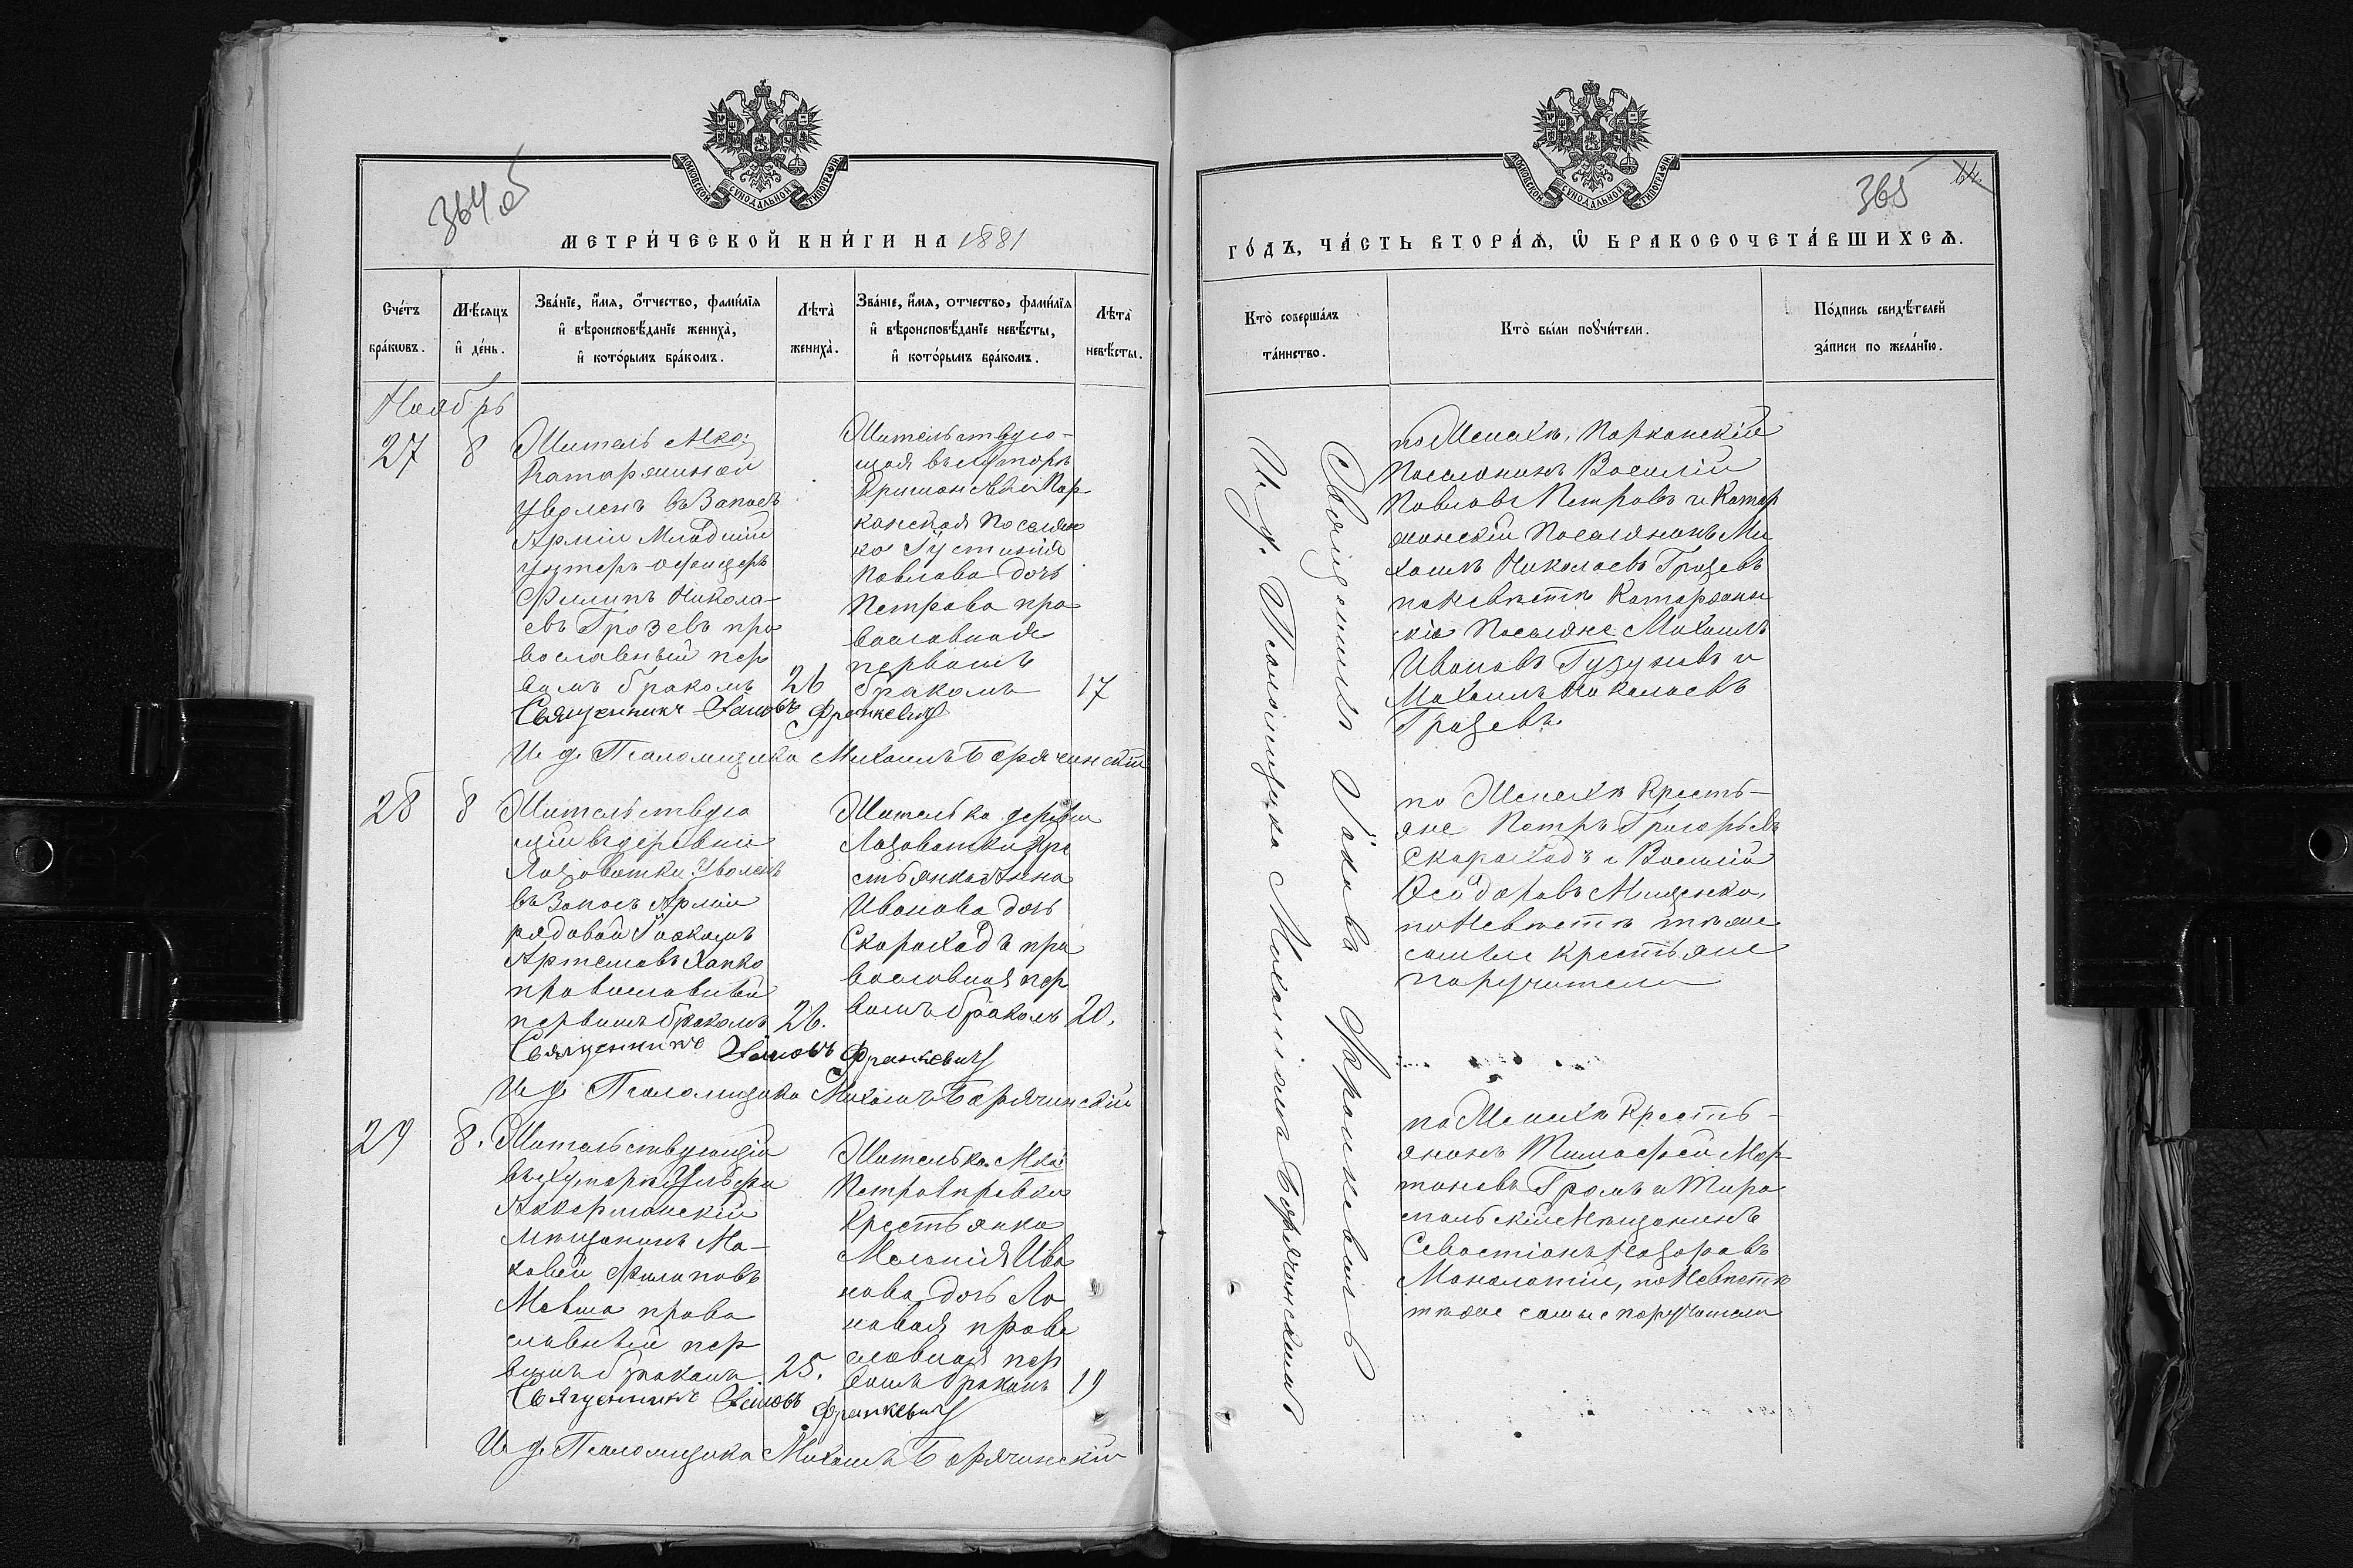 364 об
МОСКОВСКОЙ СѴНОДАЛЬНОЙ ТИПОГРАФІИ
МЕТРИ́ЧЕСКОЙ КНИ́ГИ НА 1881
Сче́тъ бра́кѡвъ.
Мѣ́сяцъ и҆ де́нь.
Зва́нїе, и҆́мя, ѻ҆́тчество, фами́лїя
и҆ вѣроисповѣ́данїе жениха̀,
и҆ кото́рымъ бра́комъ.
Лѣта̀ жениха̀.
Зва́нїе, и҆́мя, отчество, фами́лїя
и҆ вѣроисповѣ́данїе невѣ́сты,
и҆ кото́рымъ бра́комъ.
Лѣта̀ невѣ́сты.
Ноябрь
27
8
Житель Мко:
Катаржиной
уволенъ въ Запасъ
Арміи Младшій
унтеръ-офицеръ
Филипъ Никола-
евъ Грозевъ пра
вославный пер
вымъ бракомъ
26
Жительствую-
щая въ Хуторѣ
Парканская Поселян
ка Іустинія
Павлова дочь
Петрова пра
вославная
первымъ
бракомъ
17
Священникъ Іаковъ Франкевичъ
И д Псаломщика Михаилъ Борячинскій
28
8
Жительствую
щій въ деревни
Лозоватки уволенъ
въ Запасъ Арміи
рядовой Іоакимъ
Артемовъ Хапко
православный
первымъ бракомъ
26.
Жителька деревни
Лозоватки Кре
стьянка Анна
Иванова дочь
Скороходъ пра
вославная пер
вымъ бракомъ
20.
Священникъ Іаковъ Франкевичъ
И д Псаломщика Михаилъ Борячинскій
29
8.
Жительствующій
въ Хуторѣ
Аккерманскій
мѣщанинъ Ма-
ковей Филиповъ
Мевша право
славный пер
вымъ бракомъ
25.
Жителька Мка
Петровировки
Крестьянка
Меланія Ива
нова дочь Ло
новая право
славная пер
вымъ бракомъ
19
Священникъ Іаковъ Франкевичъ
И д Псаломщика Михаилъ Борячинскій
365
МОСКОВСКОЙ СѴНОДАЛЬНОЙ ТИПОГРАФІИ
ГО́ДЪ, ЧА́СТЬ ВТОРА́Ѧ, Ѡ҆ БРАКОСОЧЕТА́ВШИХСѦ.
Кто̀ соверша́лъ
та́инство.
Кто̀ были поꙋчи́тели.
По́дпись свидѣ́телей
за́писи по жела́нїю.
Священникъ Іаковъ Франкевичъ
И. д. Псаломщика Михаилъ Борячинскій
по Женихѣ, Парканскій
Поселянинъ Василій
Павловъ Петровъ и Катар
жинскій Поселянинъ Ми
хаилъ Николаевъ Грозевъ
по Невѣстѣ Катаржин
скіе Поселяне Михаилъ
Ивановъ Гузуновъ и
Михаилъ Николаевъ
Грозевъ.
по Женихѣ Кресть-
яне Петръ Григорьевъ
Скороходъ и Василій
Ѳеодоровъ Мищенко,
по Невѣстѣ тѣже
самые Крестьяне
поручители
по Женихѣ Кресть-
янинъ Тимофей Мар-
тиновъ Громъ и Тира
спольскій Мѣщанинъ
Севастіанъ
Маналатій, по Невѣстѣ
тѣже самые поручители